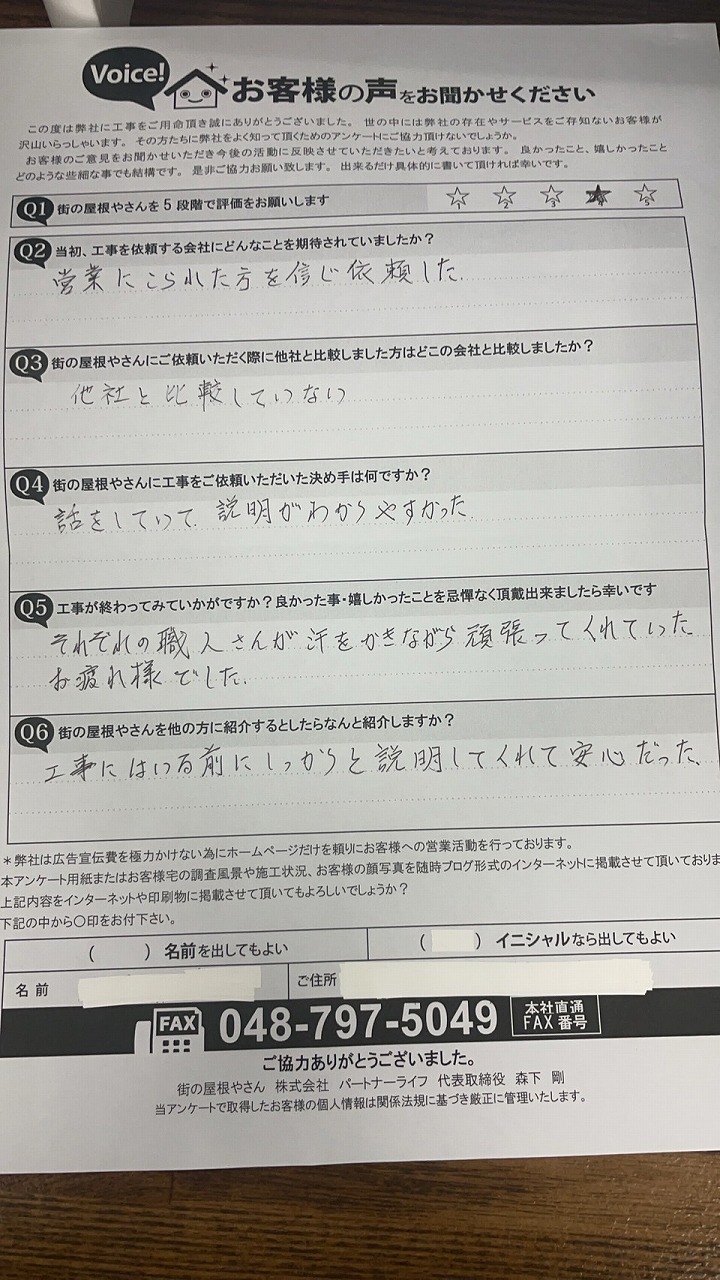 Voice!
お客様の声をお聞かせください
この度は弊社に工事をご用命頂き誠にありがとうございました。世の中には弊社の存在やサービスをご存知ないお客様が
沢山いらっしゃいます。その方たちに弊社をよく知って頂くためのアンケートにご協力頂けないでしょうか。
お客様のご意見をお聞かせいただき今後の活動に反映させていただきたいと考えております。良かったこと、嬉しかったこと
どのような些細な事でも結構です。是非ご協力お願い致します。出来るだけ具体的に書いて頂ければ幸いです。
Q1 街の屋根やさんを5段階で評価をお願いします 1 2 3 4 5
Q2 当初、工事を依頼する会社にどんなことを期待されていましたか？
営業にこられた方を信じ依頼した.
Q3 街の屋根やさんにご依頼いただく際に他社と比較しました方はどこの会社と比較しましたか？
他社と比較していない
Q4 街の屋根やさんに工事をご依頼いただいた決め手は何ですか？
話をしていて説明がわからやすかった
Q5 工事が終わってみていかがですか？良かった事・嬉しかったことを忌憚なく頂戴出来ましたら幸いです
それぞれの職人さんが汗をかきながら頑張ってくれていた
お疲れ様でした.
Q6 街の屋根やさんを他の方に紹介するとしたらなんと紹介しますか？
工事にはいる前にしっからと説明してくれて安心だった.
＊弊社は広告宣伝費を極力かけない為にホームページだけを頼りにお客様への営業活動を行っております。
本アンケート用紙またはお客様宅の調査風景や施工状況、お客様の顔写真を随時ブログ形式のインターネットに掲載させて頂いておりま
上記内容をインターネットや印刷物に掲載させて頂いてもよろしいでしょうか？
下記の中から〇印をお付下さい。
（　　）名前を出してもよい （　　）イニシャルなら出してもよい
名前 ご住所
FAX 048-797-5049 本社直通 FAX番号
ご協力ありがとうございました。
街の屋根やさん 株式会社 パートナーライフ 代表取締役 森下 剛
当アンケートで取得したお客様の個人情報は関係法規に基づき厳正に管理いたします。